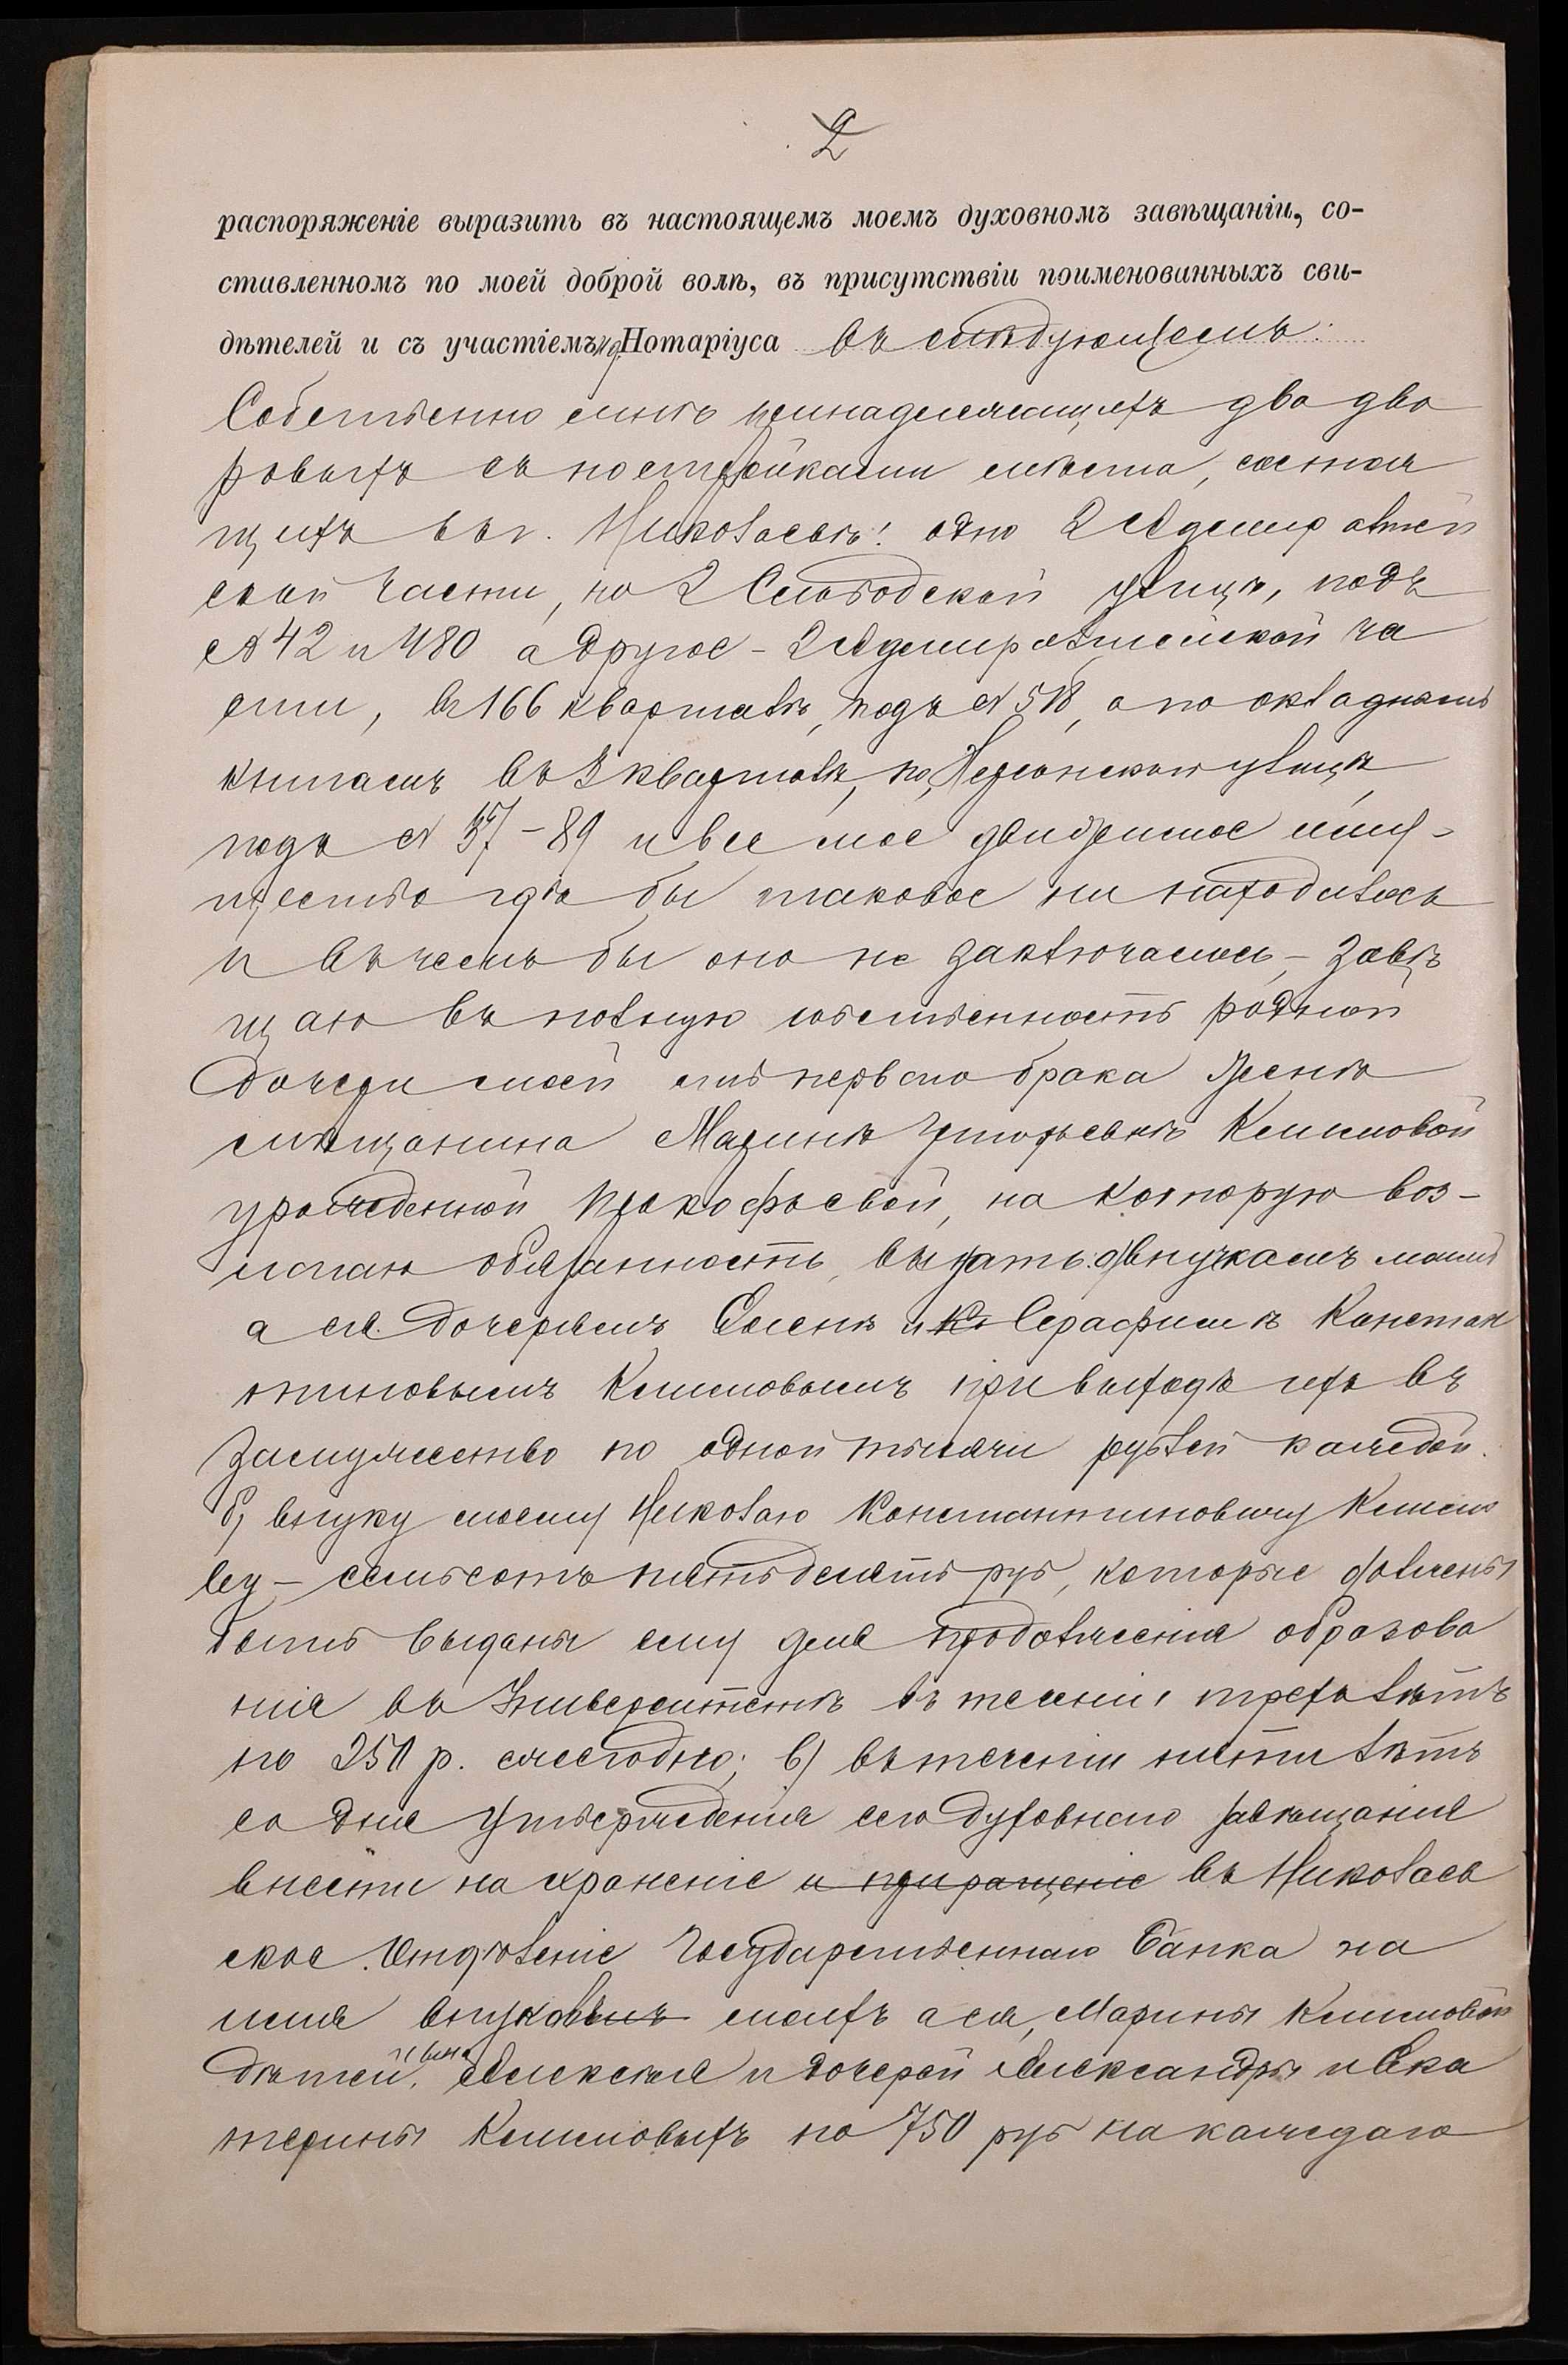 2
распоряженіе выразить въ настоящемъ моемъ духовномъ завѣщаніи, со-
ставленномъ по моей доброй волѣ, въ присутствіи поименованныхъ сви-
дѣтелей и съ участіемъ Нотаріуса въ слѣдующемъ:
Собственно мнѣ принадлежащихъ два дво
ровыхъ съ постройками мѣста, состоя
щихъ въ г. Николаевѣ: одно 2 Адмиралтей
ской части, по 2 Слободской улицѣ, подъ
№ 42 и 480 а другое - 2 Адмиралтейской ча
сти, въ 166 кварталѣ, подъ № 518, а по окладнымъ
книгамъ въ 3 кварталѣ, по Херсонской улицѣ,
подъ № 37-89 и все мое движимое иму-
щество гдѣ бы таковое ни находилось
и въ чемъ бы оно не заключалось, - завѣ
щаю въ полную собственность родной
дочери моей отъ первого брака женѣ
мѣщанина Маринѣ Климовой
урожденной Прокофьевой, на которую воз-
лагаю обязанность выдать: а) внучкамъ моимъ
а ея дочерямъ Еленѣ и К. Серафимѣ Констан
тиновымъ Климовымъ при выходѣ ихъ въ
замужество по одной тысячи рублей каждой.
б) внуку моему Николаю Константиновичу Климо
ву - семьсотъ пятьдесятъ руб, которые должны
быть выданы ему для продолженія образова
нія въ Университетѣ въ теченіи трехъ лѣтъ
по 250 р. ежегодно; в) въ теченіи пяти лѣтъ
со дня утвержденія сего духовного завѣщанія
внести на храненіе и приращеніе въ Николаев
ское Отдѣленіе Государственнаго Банка на
имя внуковымъ моихъ а ея, Марины Климовой
дѣтей, сына Алексѣя и дочерей Александры и Ека
терины Климовыхъ по 750 руб на каждаго